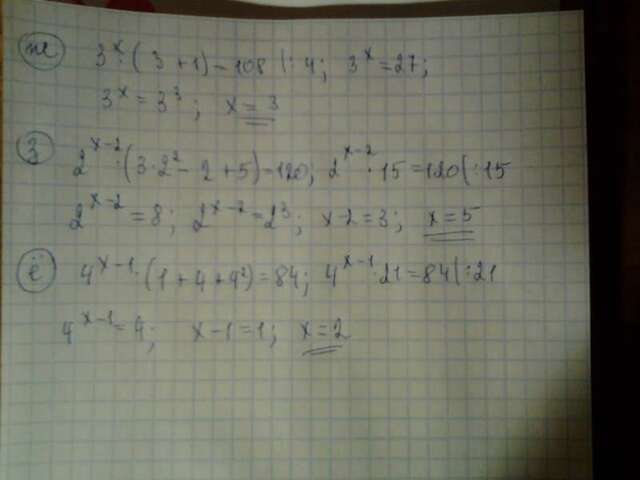 ж) 3^x·(3+1)=108 |:4; 3^x=27;
3^x=3^3; x=3
з) 2^(x-2)·(3·2^2-2+5)=120; 2^(x-2)·15=120|:15
2^(x-2)=8; 2^(x-2)=2^3; x-2=3; x=5
ё) 4^(x-1)·(1+4+4^2)=84; 4^(x-1)·21=84|:21
4^(x-1)=4; x-1=1; x=2